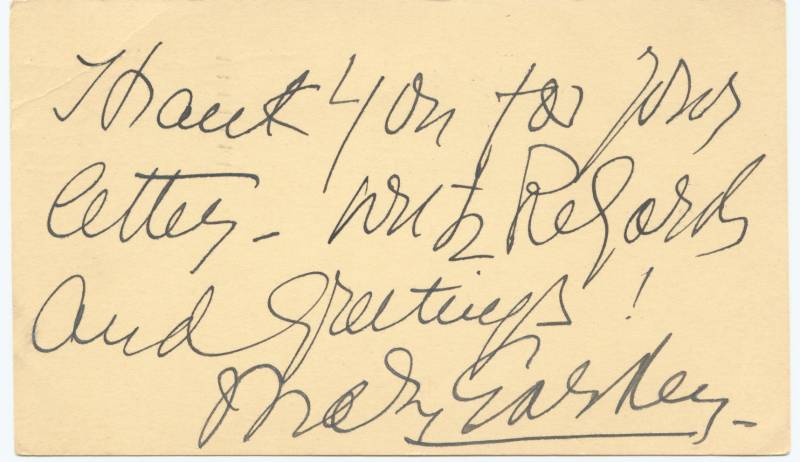 Thank You for your
letter – with Regards
and greetings!